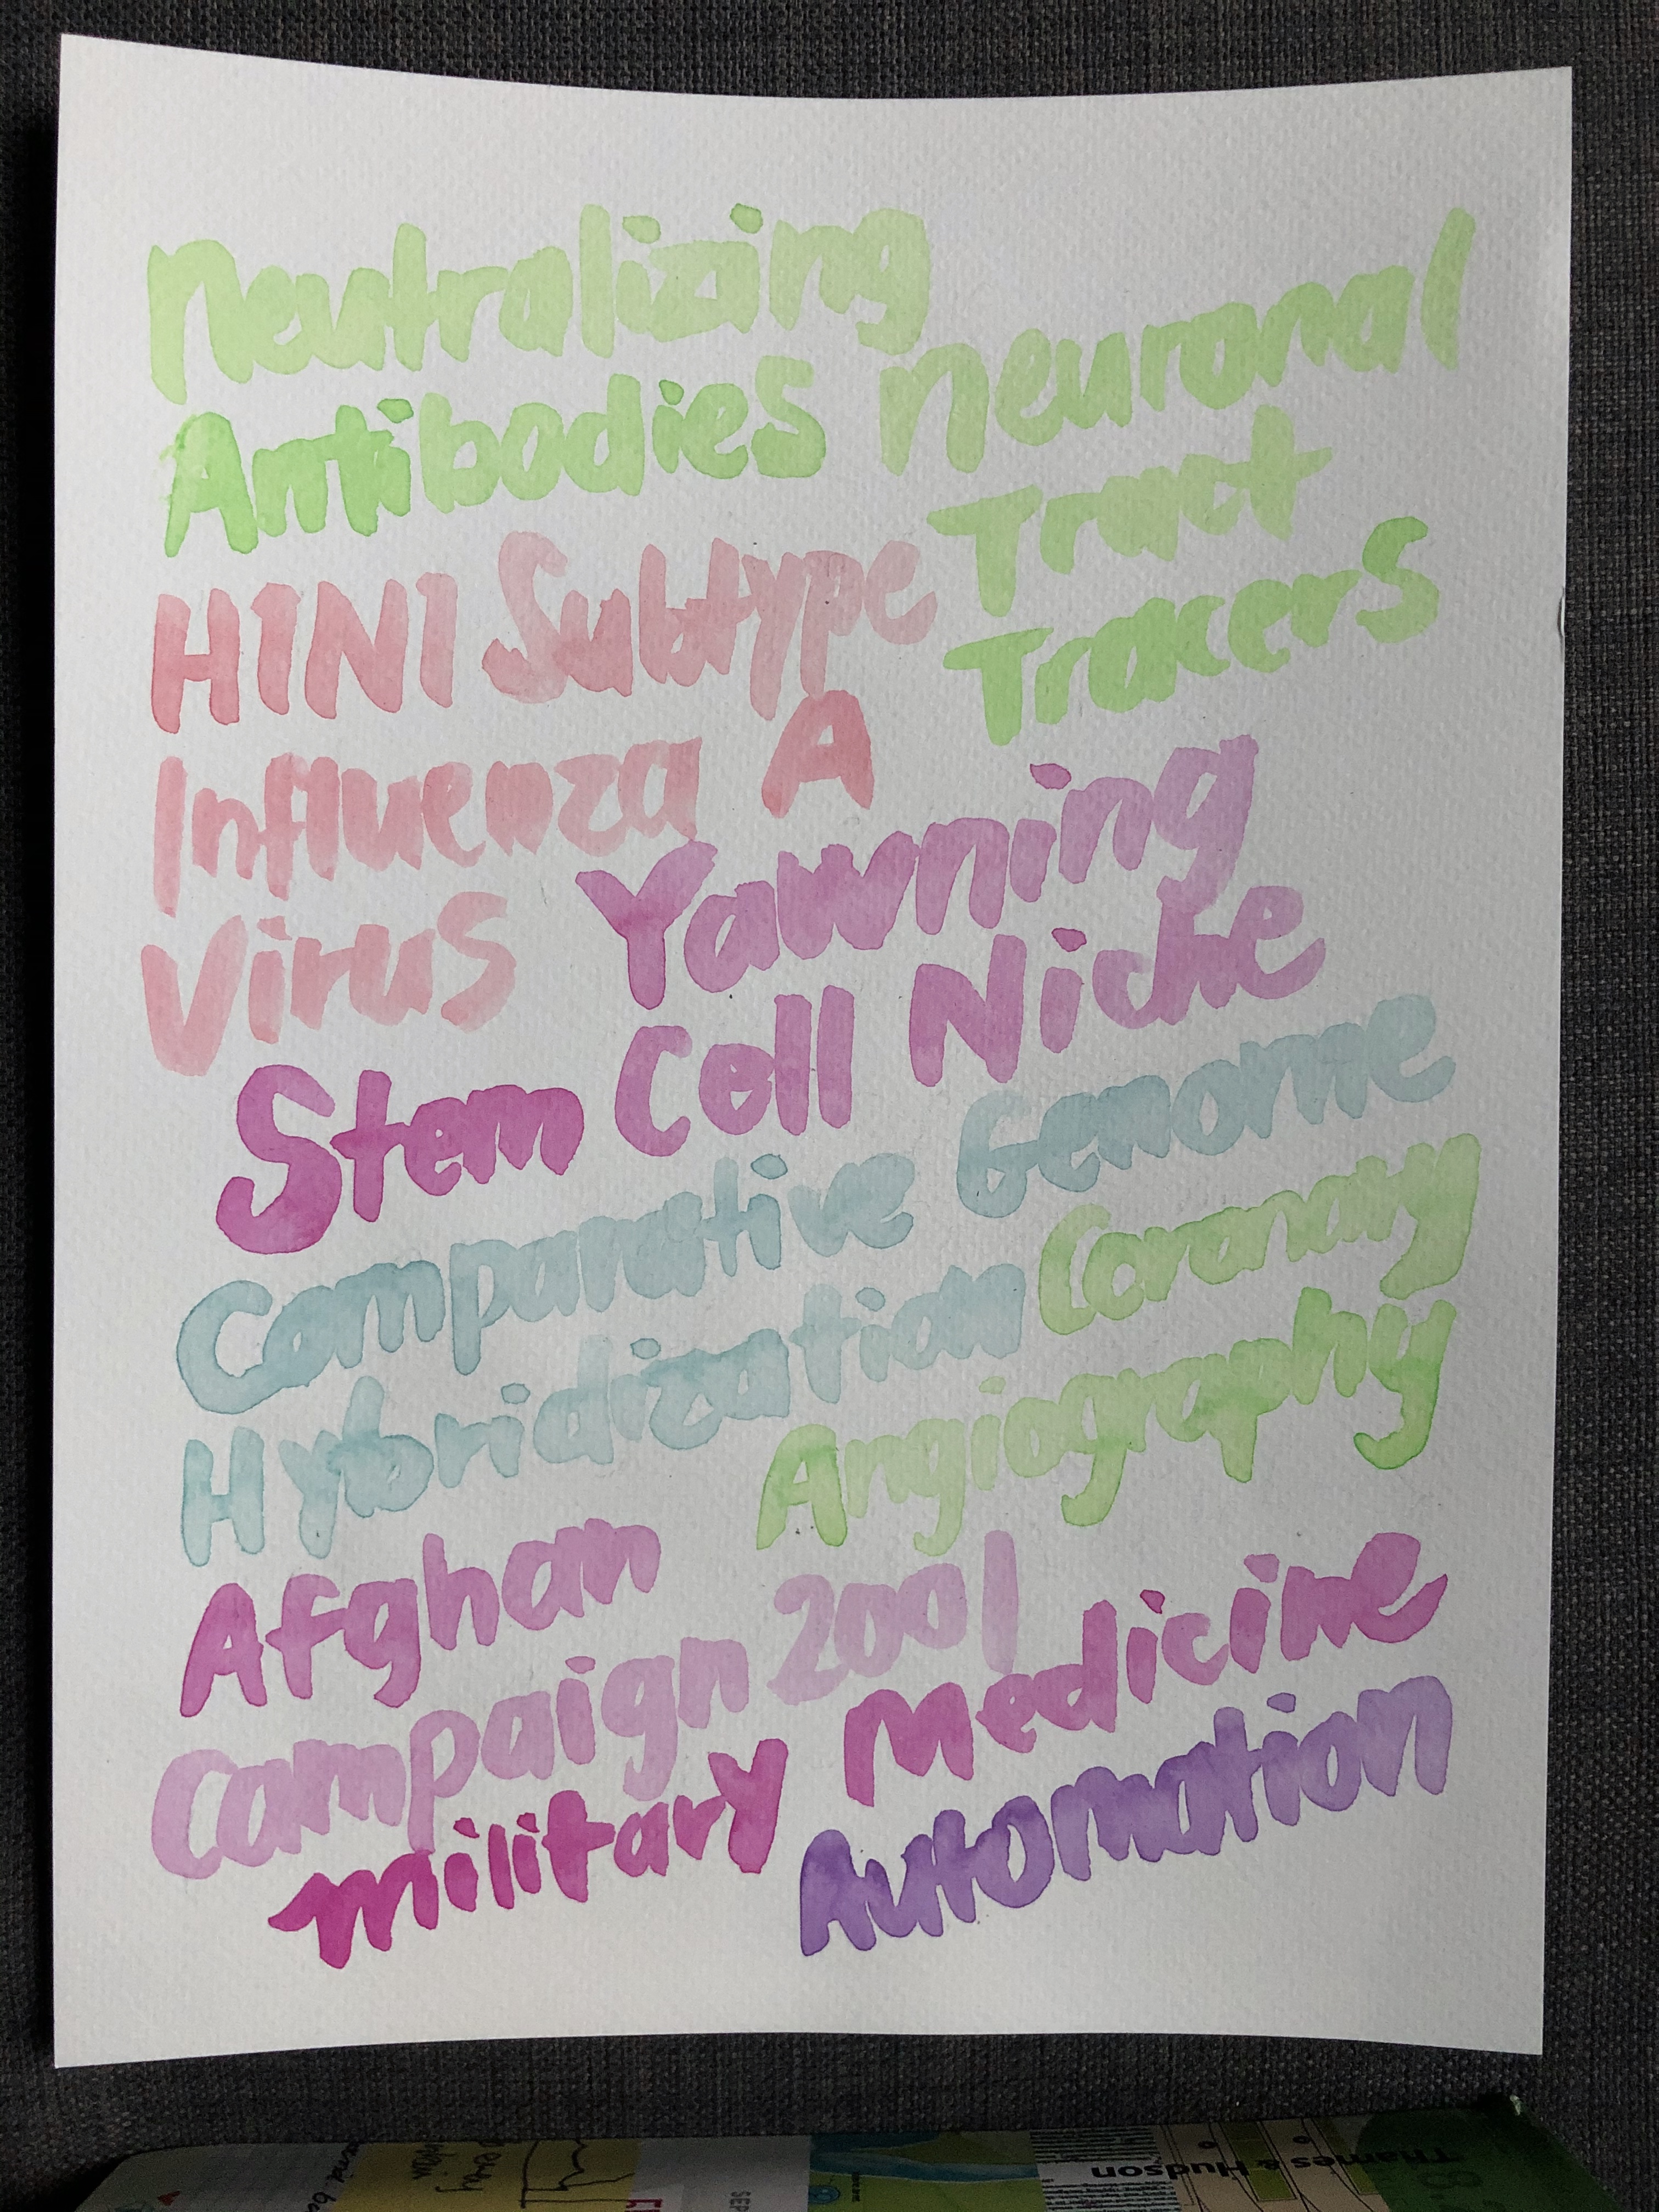 Neutralizing
Antibodies
Neuronal
Tract
Tracers
H1N1 Subtype
Influenza A
Virus
Yawning
Stem Cell Niche
Comparative Genome
Hybridization
Coronary
Angiography
Afghan
Campaign 2001
Military Medicine
Automation
Thames & Hudson